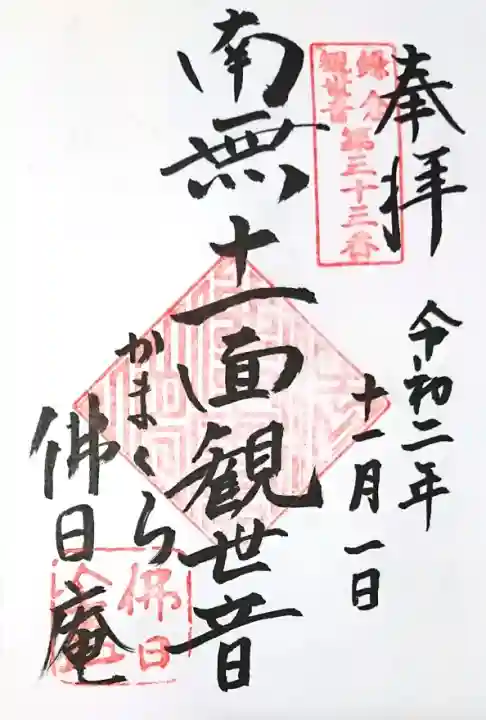 奉拝
鎌倉
観世音第三十三番
令和二年
十一月一日
南無十一面観世音
かまくら
佛日庵
佛日